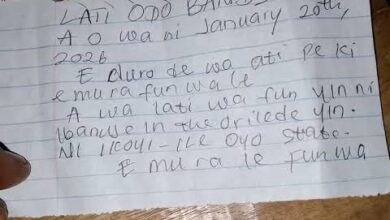 LATI ODO BAND
A O wa ni January 20th,
2026
E duro de wa ati pe ki
e mura fun wa le
A wa lati wa fun yin ni
Ibanuje in the orilede yin.
NI IKOYI-ILE OYO State.
E mura le Fun wa